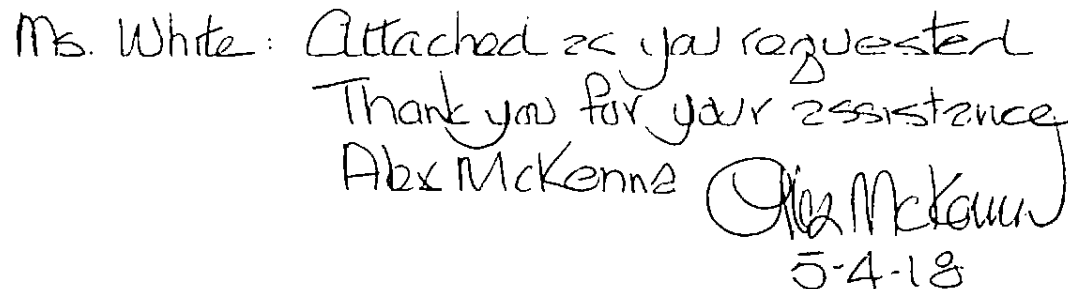 Ms. White: Attached as you requested
Thank you for your assistance
Alex McKenna
Alex McKenna
5-4-18